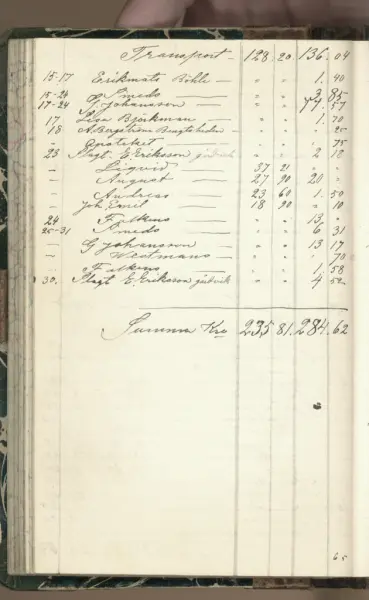 Transport 128. 20 136. 04
15-17 Erikmats Böhle " " 1. 40
15-24 Smeds " " 3 85
17-24 G. Johansson " " 71. 57
17 Lisa Björkman " " 1. 70
18 A. Bergström " " " 25
" Apoteket " " " 75
23 Slagt. E. Eriksson " " 2 18
" Liqvid 37 21 " "
" August 27 90 20 "
" Andreas 23 60 1. 50
" Joh. Emil 18 90 " 10
24 Falkens " " 13. "
25-31 Smeds " " 6 31
" G Johansson " " 13 17
" Westmans " " " 70
" Falkens " " 1. 58
30. Slagt E. Eriksson " " 4 50
Summa Kro 235 81. 284. 62
65